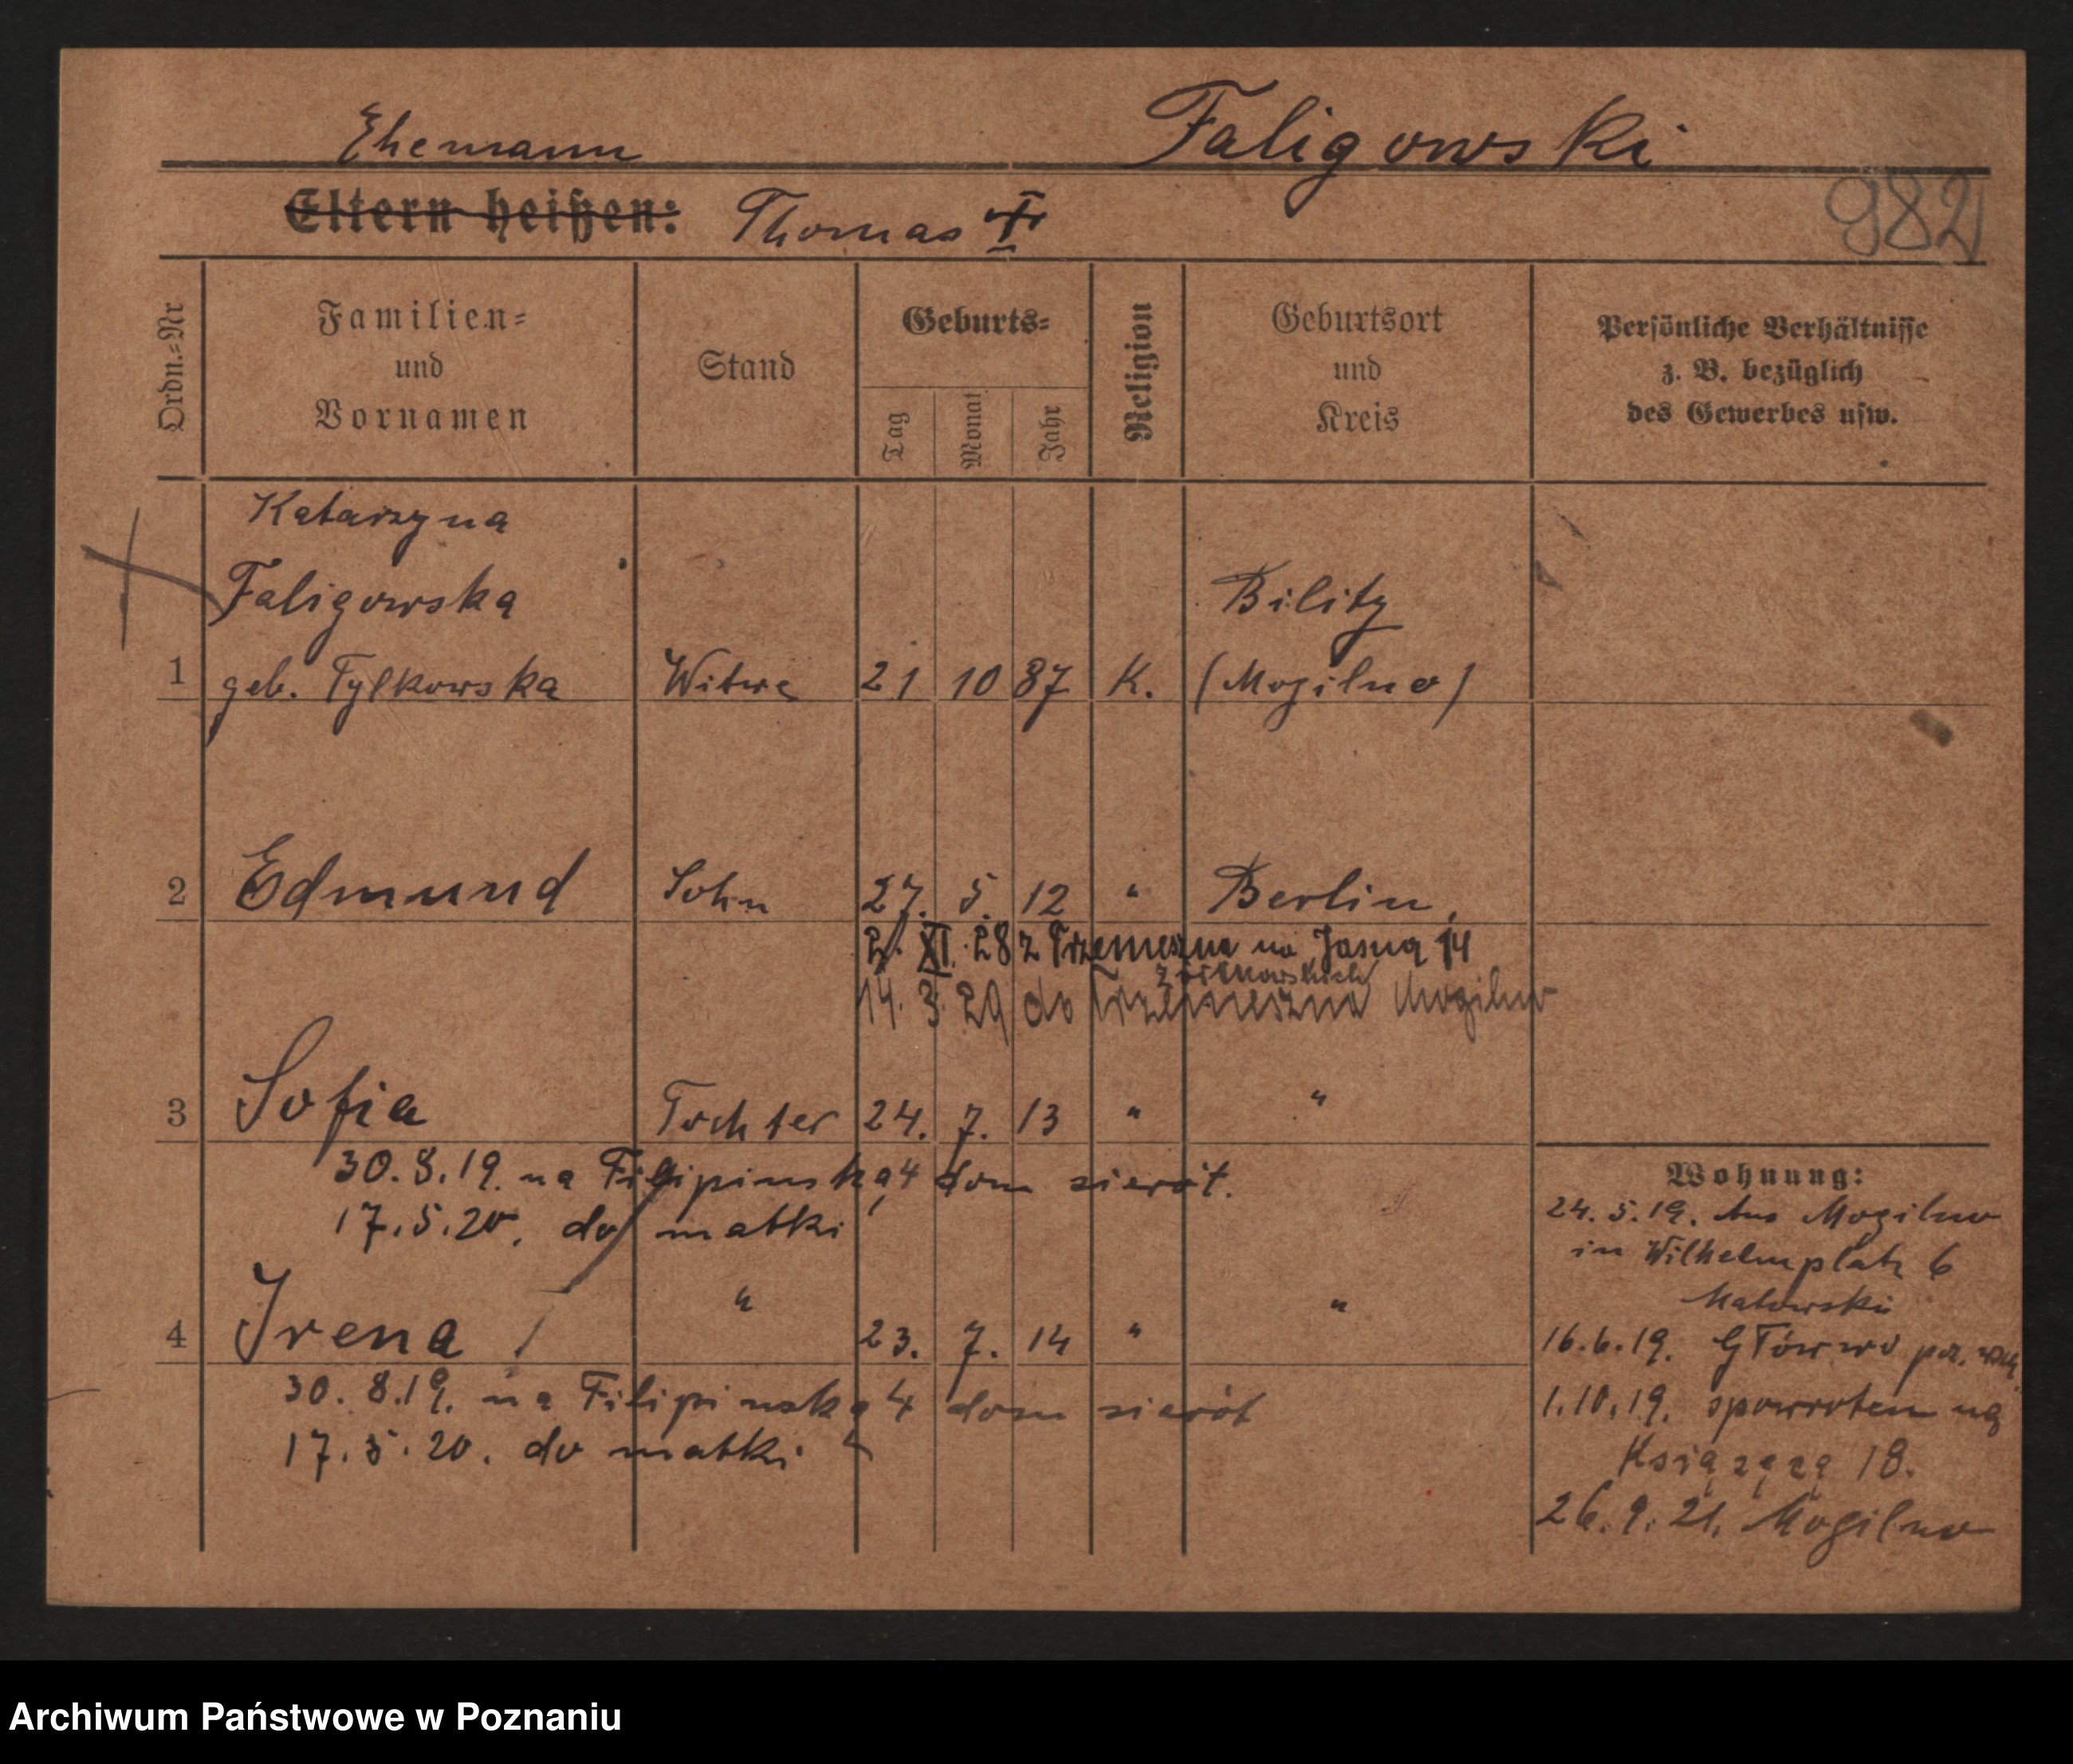 Ehemann Faligowski
Eltern heißen: Thomas †
982
Ordn.=Nr
Familien=
und
Vornamen
Stand
Geburts=
Tag
Monat
Jahr
Religion
Geburtsort
und
Kreis
Persönliche Verhältnisse
z. B. bezüglich
des Gewerbes usw.
Katarzyna
Faligowska Bility
1 geb. Tylkowska Witwe 21 10 87 K. (Mogilno)
2 Edmund Sohn 27. 5. 12 " Berlin,
2. XI. 28 z Trzemeszna na Jasną 14
14. 3. 29 do Trzemeszna Mogilno
3 Sofia Tochter 24. 7. 13 " "
30.8.19. na Filipinską 4 dom sierót.
17.5.20. do matki
4 Irena " 23. 7. 14 " "
30.8.19. na Filipinską 4 dom sierót
17.5.20. do matki
Wohnung:
24.5.19. Aus Mogilno
in Wilhelmplatz 6
16.6.19. Główno
1.10.19. spowrotem na
Książęzą 18.
26.9.21. Mogilno
Archiwum Państwowe w Poznaniu